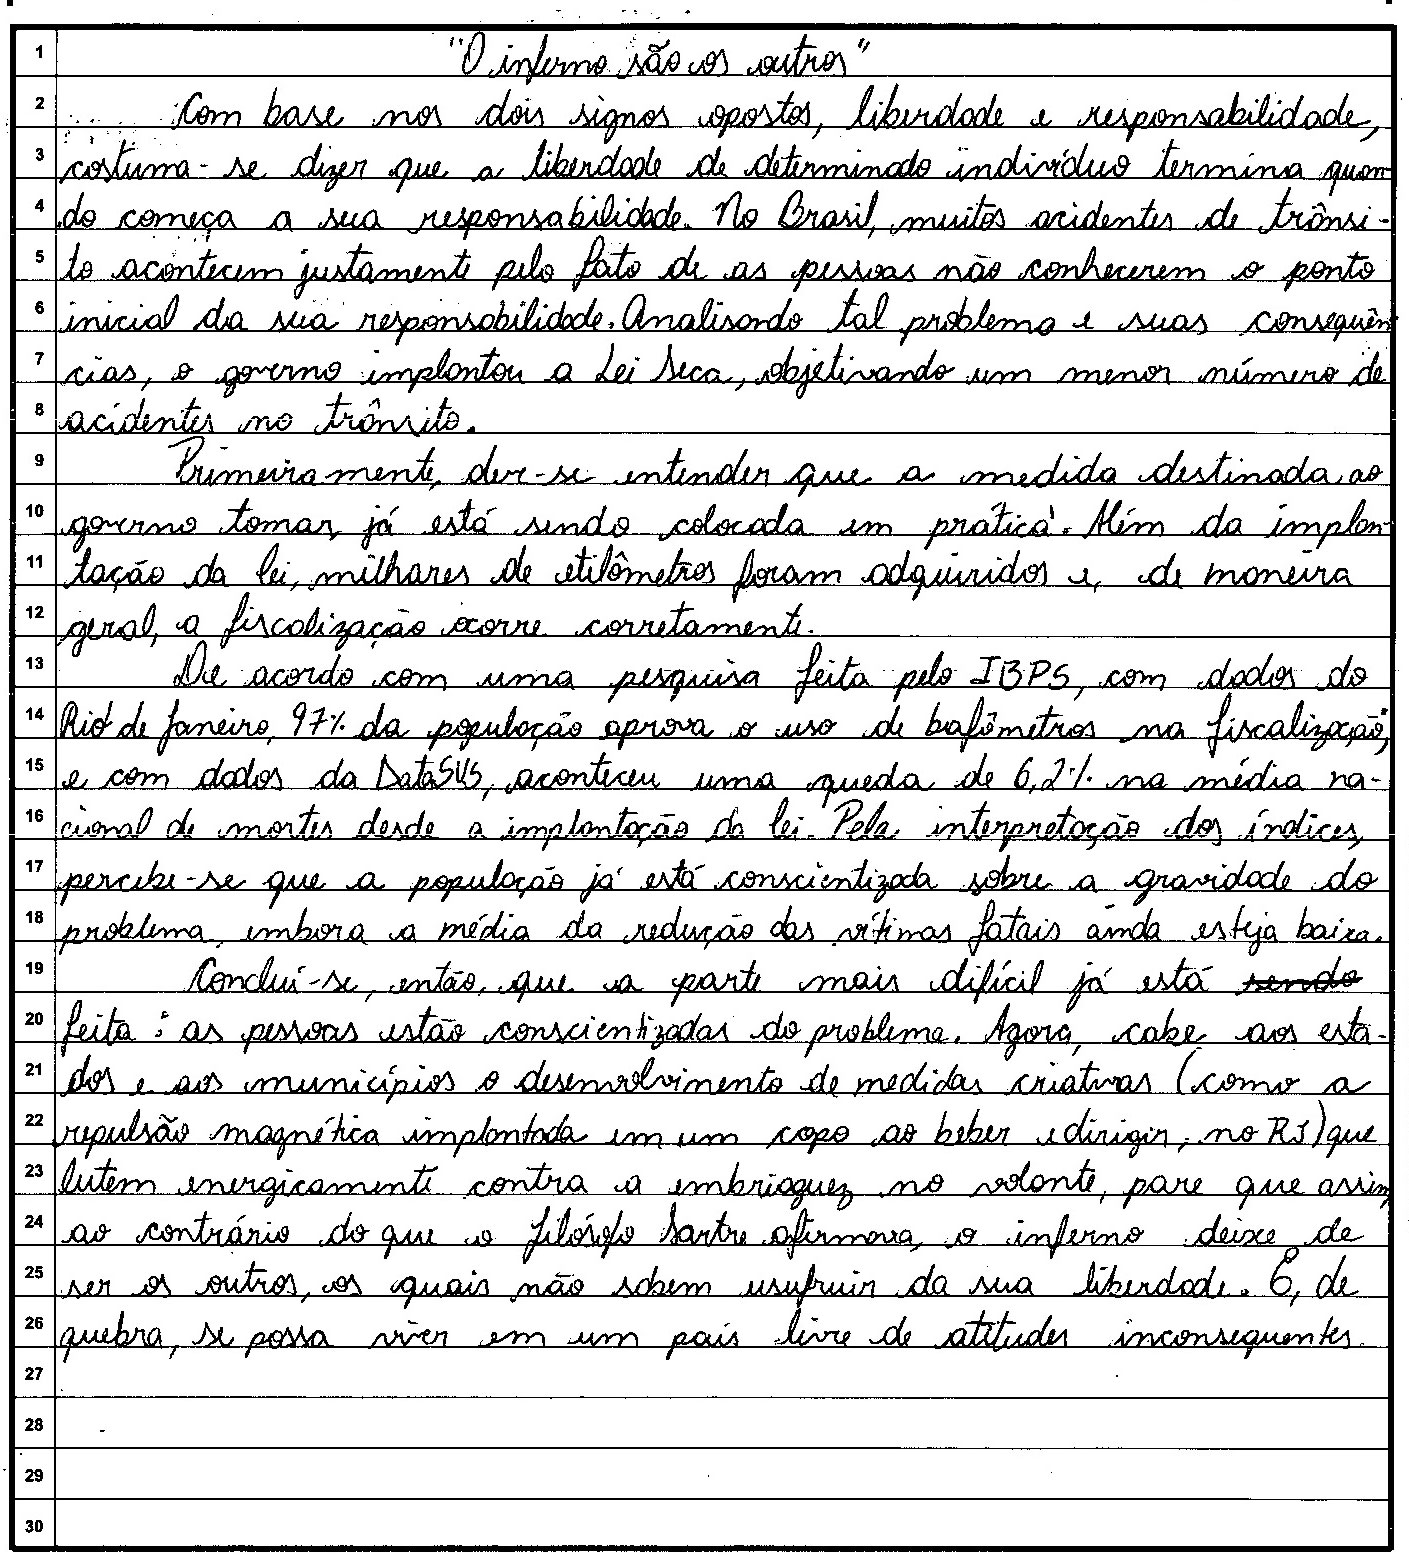 1 "O inferno são os outros"
2 Com base nos dois signos opostos, liberdade e responsabilidade,
3 costuma-se dizer que a liberdade de determinado indivíduo termina quan-
4 do começa a sua responsabilidade. No Brasil, muitos acidentes de trânsi-
5 to acontecem justamente pelo fato de as pessoas não conhecerem o ponto
6 inicial da sua responsabilidade. Analisando tal problema e suas consequên
7 cias, o governo implantou a Lei Seca, objetivando um menor número de
8 acidentes no trânsito.
9 Primeiramente, deve-se entender que a medida destinada ao
10 governo tomar, já está sendo colocada em prática. Além da implan-
11 tação da lei, milhares de etilômetros foram adquiridos e, de maneira
12 geral, a fiscalização ocorre corretamente.
13 De acordo com uma pesquisa feita pelo IBPS, com dados do
14 Rio de Janeiro, 97% da população aprova o uso de bafômetros na fiscalização;
15 e com dados da DataSUS, aconteceu uma queda de 6,2% na média na-
16 cional de mortes desde a implantação da lei. Pela interpretação dos índices,
17 percebe-se que a população já está conscientizada sobre a gravidade do
18 problema, embora a média da redução das vítimas fatais ainda esteja baixa.
19 Conclui-se, então, que a parte mais difícil já está sendo
20 feita: as pessoas estão conscientizadas do problema. Agora, cabe aos esta-
21 dos e aos municípios o desenvolvimento de medidas criativas (como a
22 repulsão magnética implantada em um copo ao beber e dirigir, no RJ) que
23 lutem energicamente contra a embriaguez no volante, para que assim,
24 ao contrário do que o filósofo Sartre afirmava, o inferno deixe de
25 ser os outros, os quais não sabem usufruir da sua liberdade. E, de
26 quebra, se possa viver em um país livre de atitudes inconsequentes.
27
28
29
30